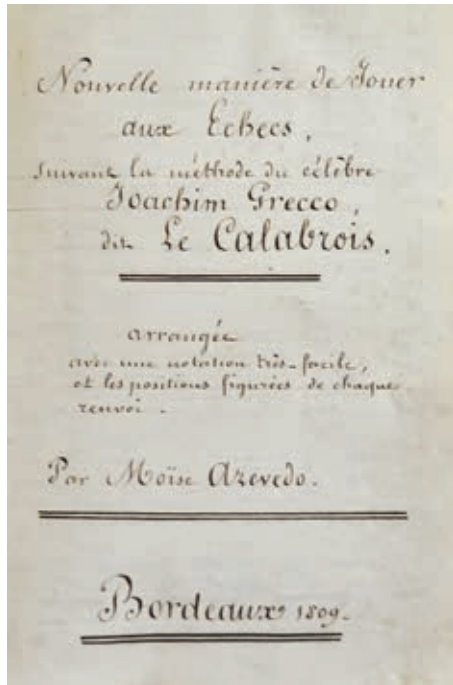 Nouvelle manière de Jouer
aux Echecs,
suivant la méthode du célèbre
Joachim Grecco,
dit Le Calabrois.
arrangée
avec une notation très-facile,
et les positions figurées de chaque
renvoi.
Par Moïse Azevedo.
Bordeaux 1809.